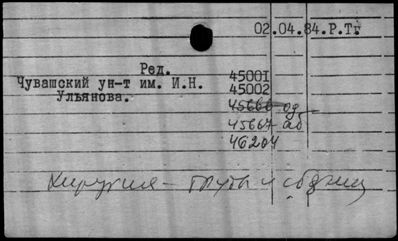 02.04.84.Р.Тг
Ред.
Чувашский ун-т им. И.Н.
Ульянова.
45001
45002
45666 од
45667 аб
46204
Хирургия — труды и сб